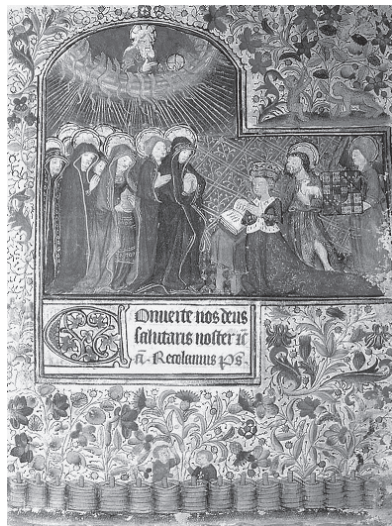 Conuerte nos deus
salutaris noster ic̄
a̅. Recolamus ps̄.